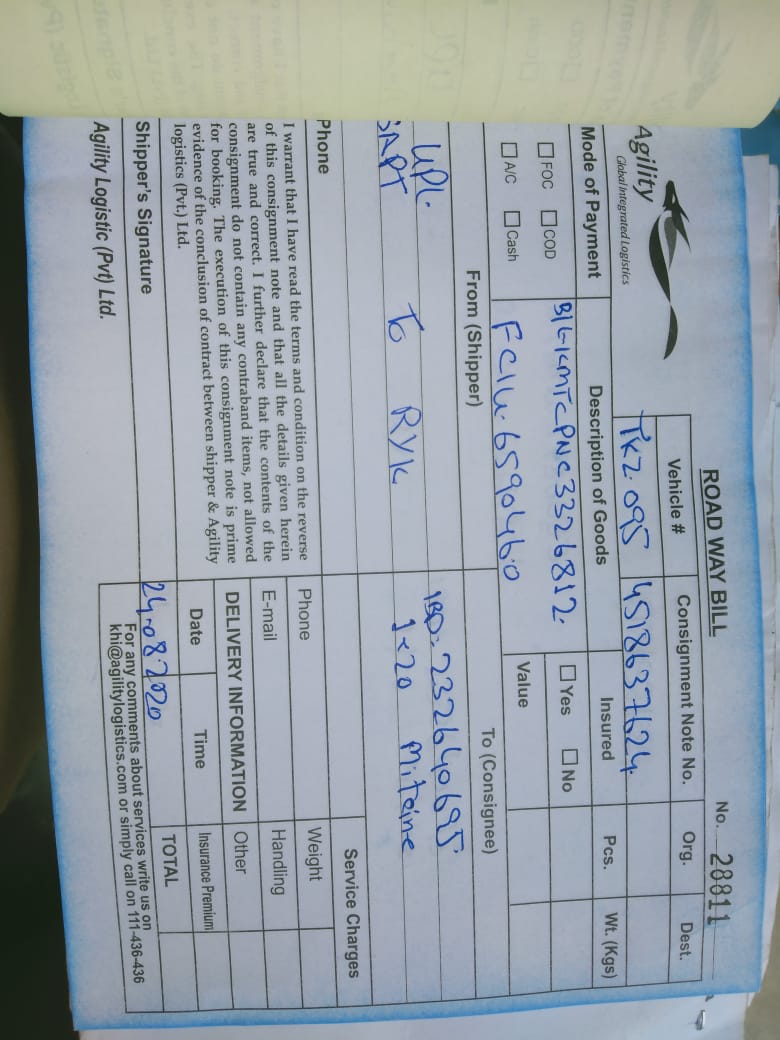 ROAD WAY BILL
No. 28811
Agility
Global Integrated Logistics
Vehicle #
Consignment Note No.
Org.
Dest.
TKZ.095
4518637624
Mode of Payment
Description of Goods
Insured
Pcs.
Wt. (Kgs)
FOC
COD
A/C
Cash
B/L-KMTCPNC3326812.
FCIU.6590460
Yes
No
Value
From (Shipper)
To (Consignee)
UPL.
SAPT To RYK
IBD-232640695
1x20
Phone
I warrant that I have read the terms and condition on the reverse
of this consignment note and that all the details given herein
are true and correct. I further declare that the contents of the
consignment do not contain any contraband items, not allowed
for booking. The execution of this consignment note is prime
evidence of the conclusion of contract between shipper & Agility
logistics (Pvt.) Ltd.
Shipper's Signature
Agility Logistic (Pvt) Ltd.
Phone
E-mail
DELIVERY INFORMATION
Date
Time
24.08.2020
Service Charges
Weight
Handling
Other
Insurance Premium
TOTAL
For any comments about services write us on
khi@agilitylogistics.com or simply call on 111-436-436